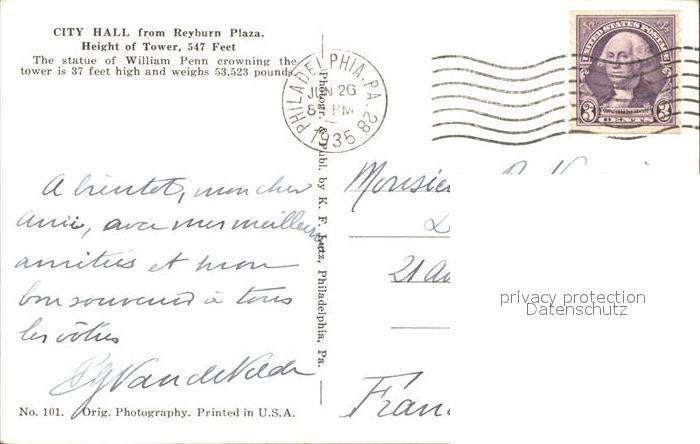 CITY HALL from Reyburn Plaza.
Height of Tower, 547 Feet
The statue of William Penn crowning the
tower is 37 feet high and weighs 53,523 pounds.
PHILADELPHIA, PA. 28
JUN 26
8 PM
1935
UNITED STATES POSTAGE
3 3
CENTS
Photogr. & Publ. by K. F. Lutz, Philadelphia, Pa.
A bientôt, mon cher
ami, avec mes meilleures
amitiés et mon
bon souvenir à tous
les vôtres
VandeVelde
Monsie
21 Av
Fran
privacy protection
Datenschutz
No. 101. Orig. Photography. Printed in U.S.A.